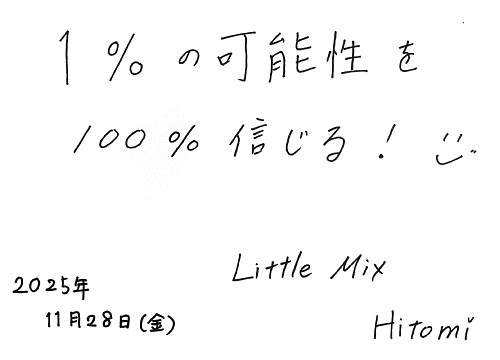 1%の可能性を
100%信じる!
Little Mix
Hitomi
2025年
11月28日(金)